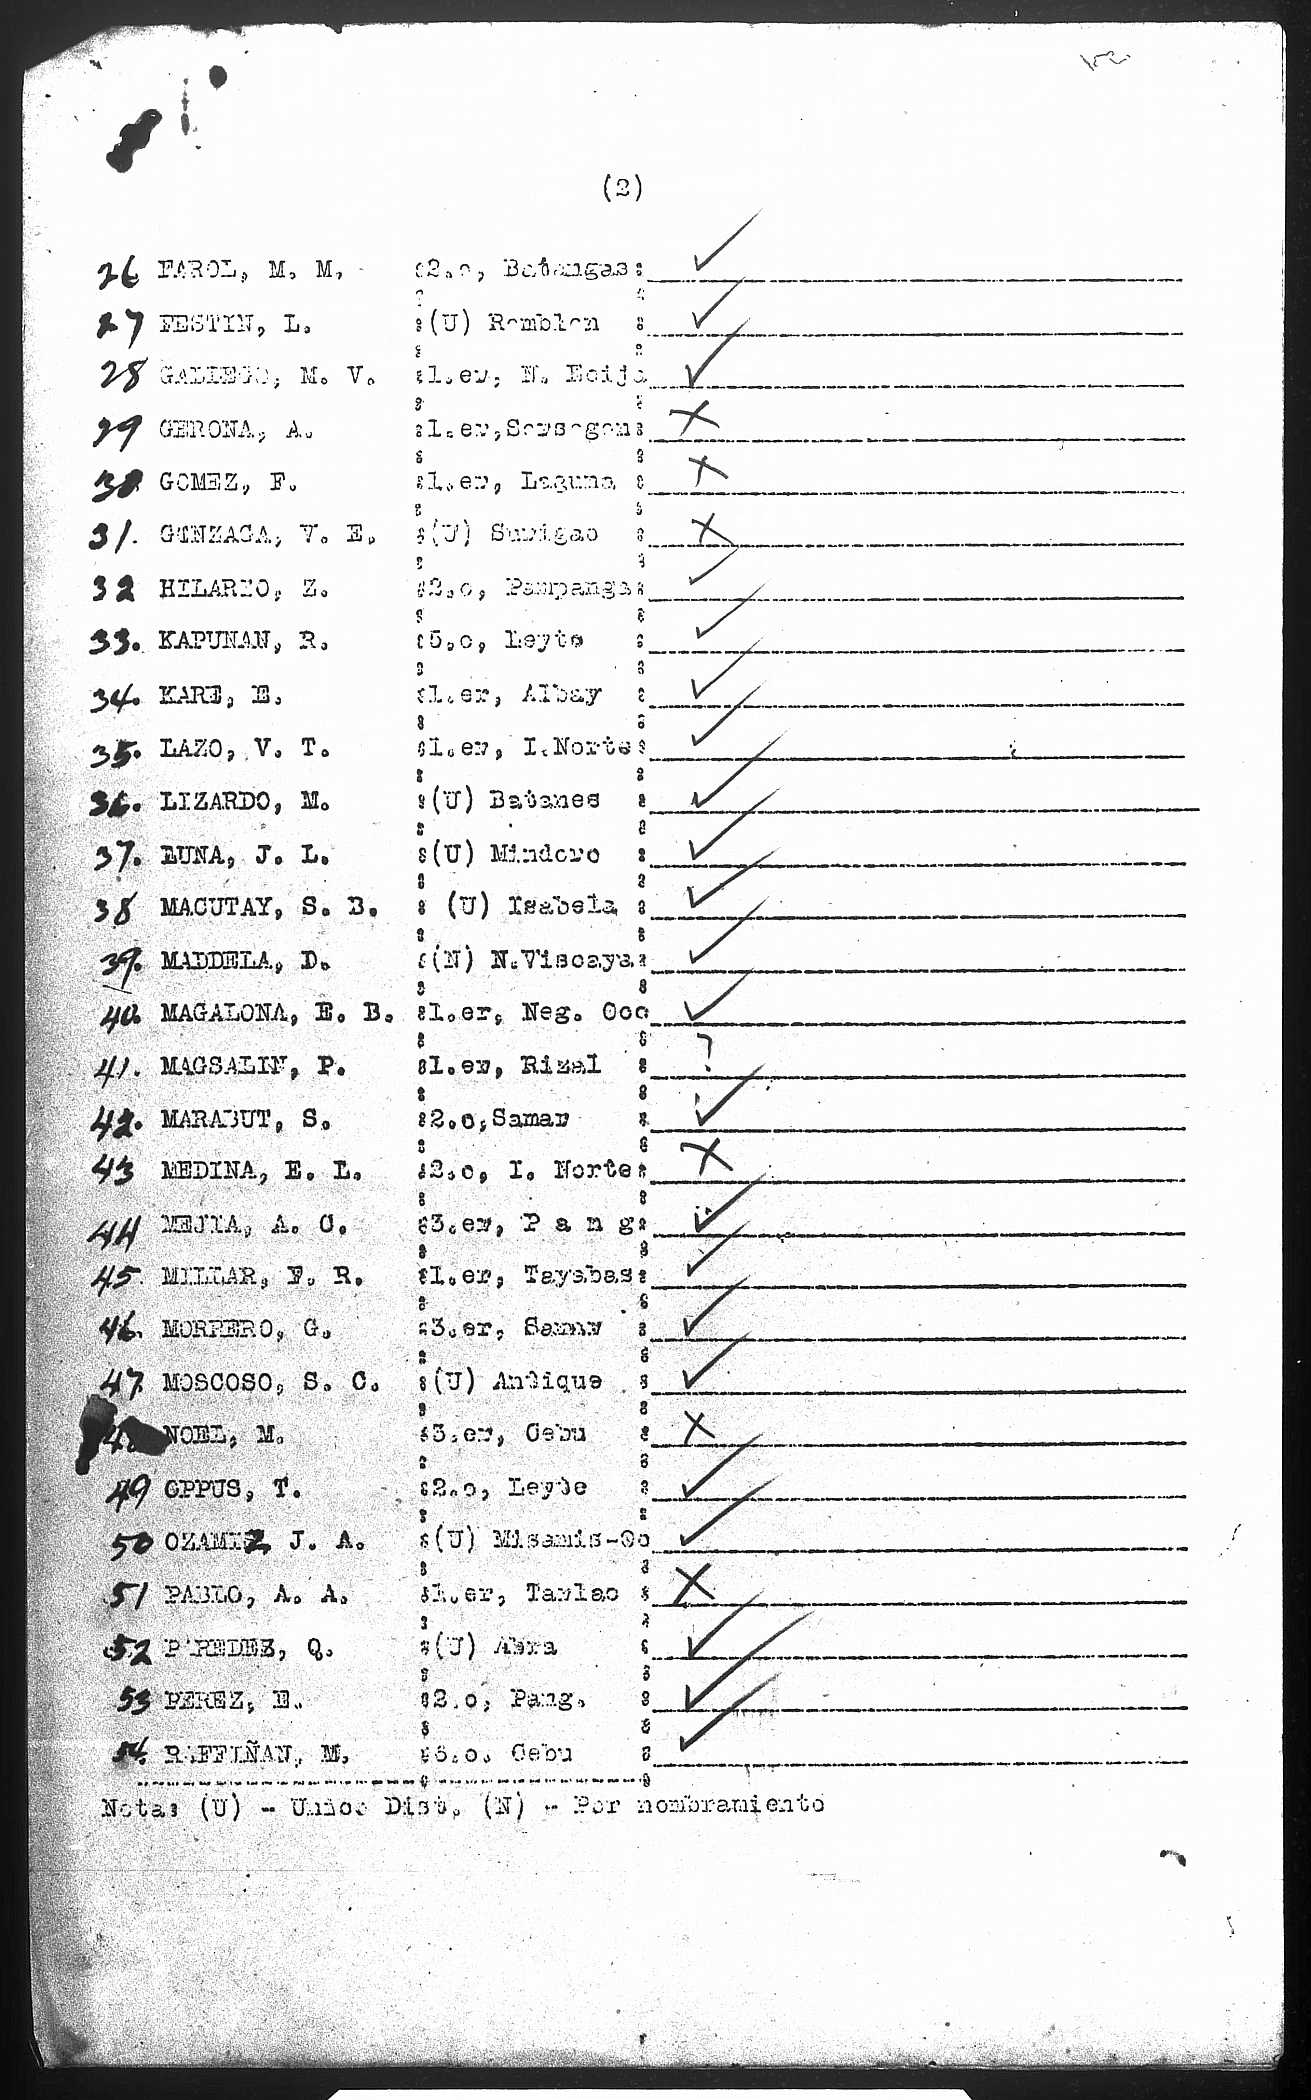 (2)
26 FAROL, M. M. :2.o, Batangas: ✓
27 FESTIN, L. :(U) Romblon : ✓
28 GALLEGO, M. V. :1.er, N. Ecija ✓
29 GERONA, A. :1.er,Sorsogon: X
30 GOMEZ, F. :1.er, Laguna : X
31. GONZAGA, V. E. :(U) Surigao : X
32 HILARIO, Z. :2.o, Pampanga: ✓
33. KAPUNAN, R. :5.o, Leyte : ✓
34. KARE, E. :1.er, Albay : ✓
35. LAZO, V. T. :1.er, I.Norte: ✓
36. LIZARDO, M. :(U) Batanes : ✓
37. LUNA, J. L. :(U) Mindoro : ✓
38 MACUTAY, S. B. : (U) Isabela : ✓
39. MADDELA, D. :(N) N.Viscaya: ✓
40. MAGALONA, E. B. :1.er, Neg. Occ ✓
41. MAGSALIN, P. :1.er, Rizal : ?
42. MARABUT, S. :2.o,Samar : ✓
43 MEDINA, E. L. :2.o, I. Norte: X
44 MEJIA, A. C. :3.er, P a n g: ✓
45. MILLAR, F. R. :1.er, Tayabas: ✓
46. MORRERO, G. :3.er, Samar : ✓
47 MOSCOSO, S. C. :(U) Antique : ✓
NOEL, M. :3.er, Cebu : X
49 OPPUS, T. :2.o, Leyte : ✓
50 OZAMIZ, J. A. :(U) Misamis-Oc ✓
51 PABLO, A. A. :1.er, Tarlac : X
52 P REDES, Q. :(U) Abra : ✓
53 PEREZ, E. :2.o, Pang. : ✓
54. RAFFIÑAN, M. :6.o. Cebu : ✓
Nota: (U) - Unico Dist. (N) - Por nombramiento